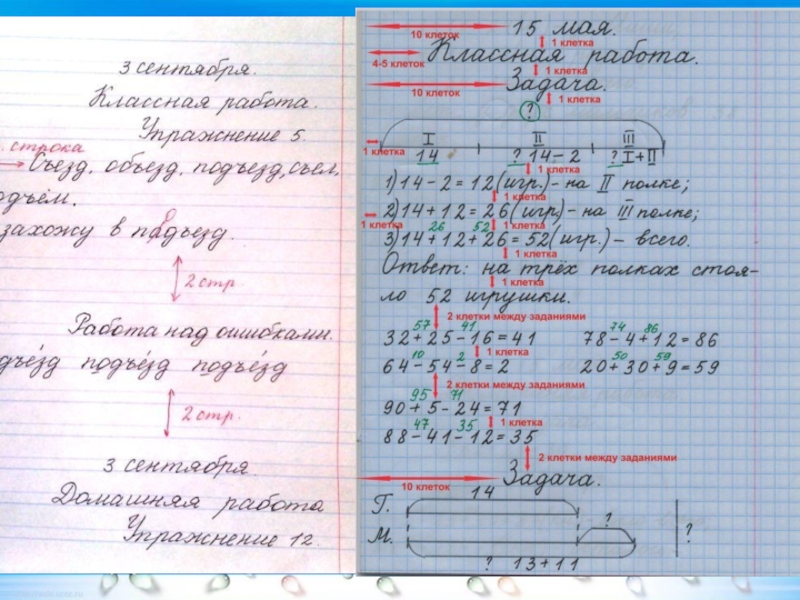 3 сентября.
Классная работа.
Упражнение 5.
строка
Съезд, объезд, подъезд, съем,
подъём.
захожу в подъезд.
2 стр.
Работа над ошибками.
подъезд подъезд
2 стр.
3 сентября
Домашняя работа
Упражнение 12.
10 клеток 15 мая.
1 клетка
4-5 клеток Классная работа.
1 клетка
10 клеток Задача.
1 клетка
?
I II III
1 клетка 14 ? 14-2 ? I+II
1) 14-2=12 (игр.) - на II полке;
1 клетка
1 клетка 2) 14+12=26 (игр.) - на III полке;
26 52 1 клетка
3) 14+12+26=52 (игр.) - всего.
1 клетка
Ответ: на трёх полках стоя-
1 клетка
ло 52 игрушки.
2 клетки между заданиями
57 41 74 86
32+25-16=41 78-4+12=86
10 2 1 клетка 50 59
64-54-8=2 20+30+9=59
2 клетки между заданиями
95 71
90+5-24=71
47 35 1 клетка
88-41-12=35
2 клетки между заданиями
10 клеток Задача.
14
Г.
?
М. ?
? 13+11